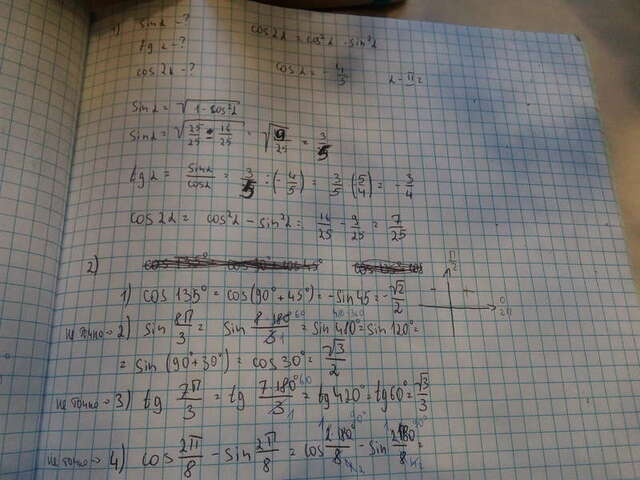 1) sin α - ? cos2α = cos²α - sin²α
tg α - ?
cos 2α - ? cos α = - 4/5
sin α = √(1 - cos²α)
sin α = √(25/25 - 16/25) = √(9/25) = 3/5
tg α = sinα/cosα = 3/5 : (-4/5) = 3/5 (5/4) = - 3/4
cos 2α = cos²α - sin²α = 16/25 - 9/25 = 7/25
2)
1) cos 135° = cos(90° + 45°) = - sin 45 = - √2/2
π/2
0
2π
не точно → 2) sin 8π/3 = sin 8·180°/3 = sin 480° = sin 120° =
= sin (90° + 30°) = cos 30° = √3/2
не точно → 3) tg 7π/3 = tg 7·180°/3 = tg 420° = tg 60° = √3/3
не точно → 4) cos 2π/8 - sin 2π/8 = cos 2·180°/8 - sin 2·180°/8 =